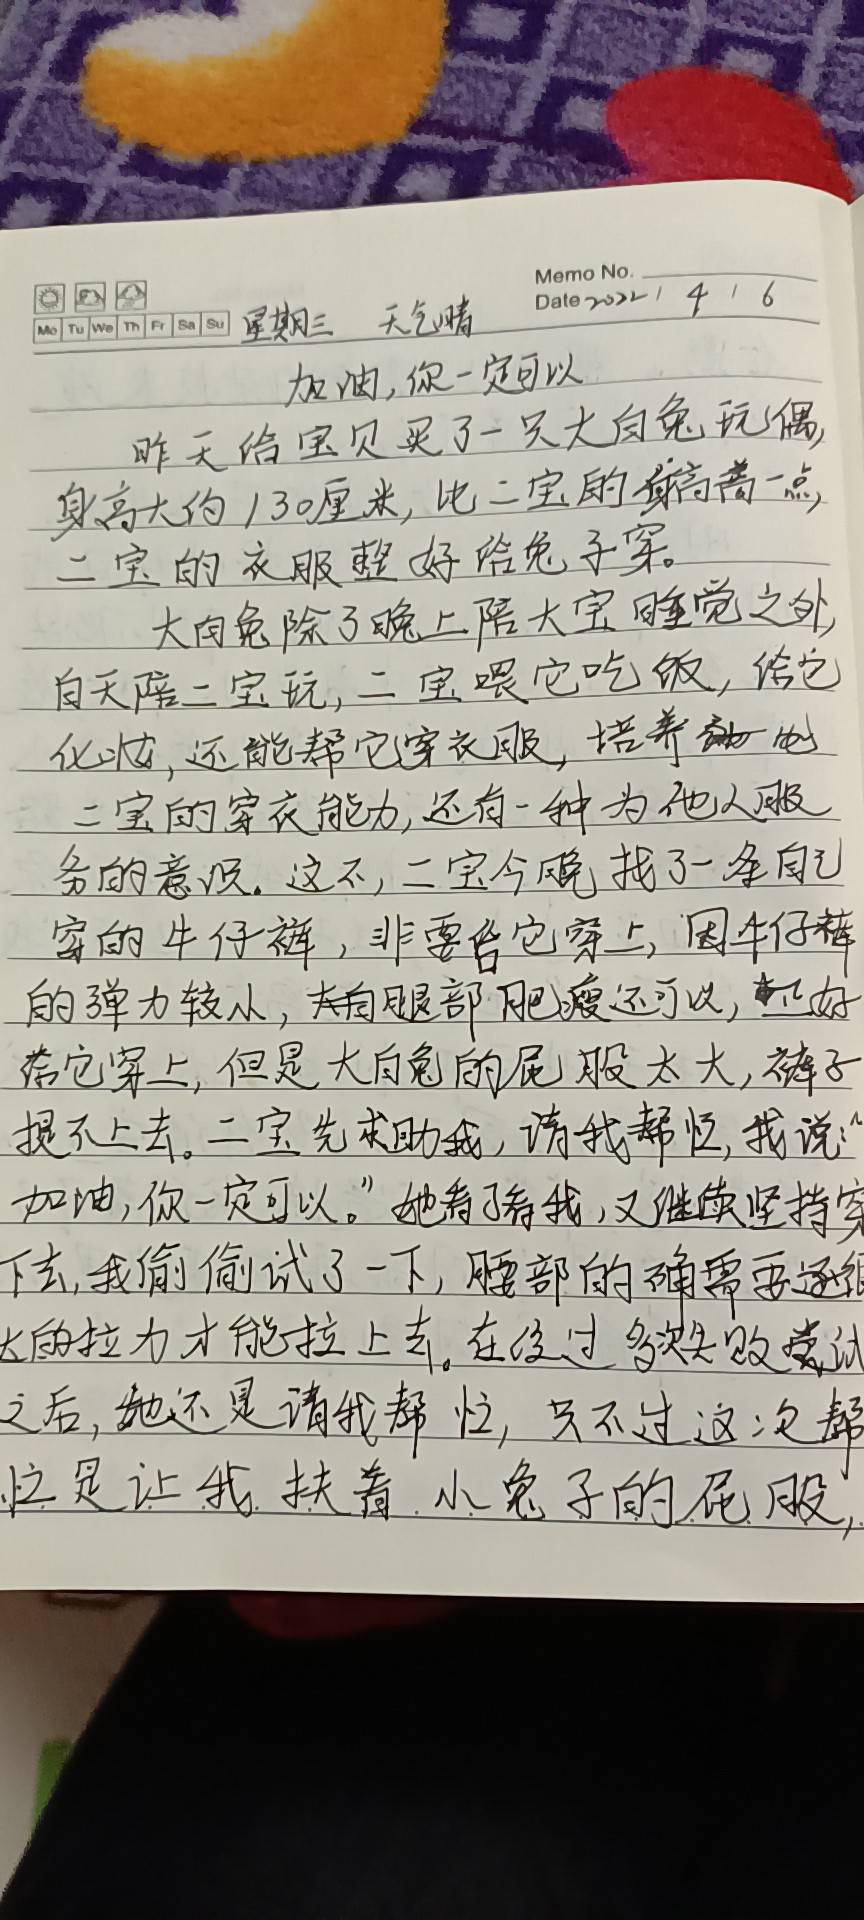 Memo No.
Mo Tu We Th Fr Sa Su 星期三 天气晴 Date 2022 / 4 / 6
加油,你一定可以
昨天给宝贝买了一只大白兔玩偶,
身高大约130厘米,比二宝的身高高一点,
二宝的衣服整好给兔子穿。
大白兔除了晚上陪大宝睡觉之外,
白天陪二宝玩,二宝喂它吃饭,给它
化妆,还能帮它穿衣服,培养
二宝的穿衣能力,还有一种为他人服
务的意识。这不,二宝今晚找了一条自己
穿的牛仔裤,非要给它穿上,因牛仔裤
的弹力较小,腿部肥瘦还可以,正好
给它穿上,但是大白兔的屁股太大,裤子
提不上去。二宝先求助我,请我帮忙,我说:“
加油,你一定可以。”她看了看我,又继续坚持穿
下去,我偷偷试了一下,腰部的确需要逐组
大的拉力才能拉上去。在经过多次失败尝试
之后,她还是请我帮忙,只不过这次帮
忙是让我扶着小兔子的屁股,